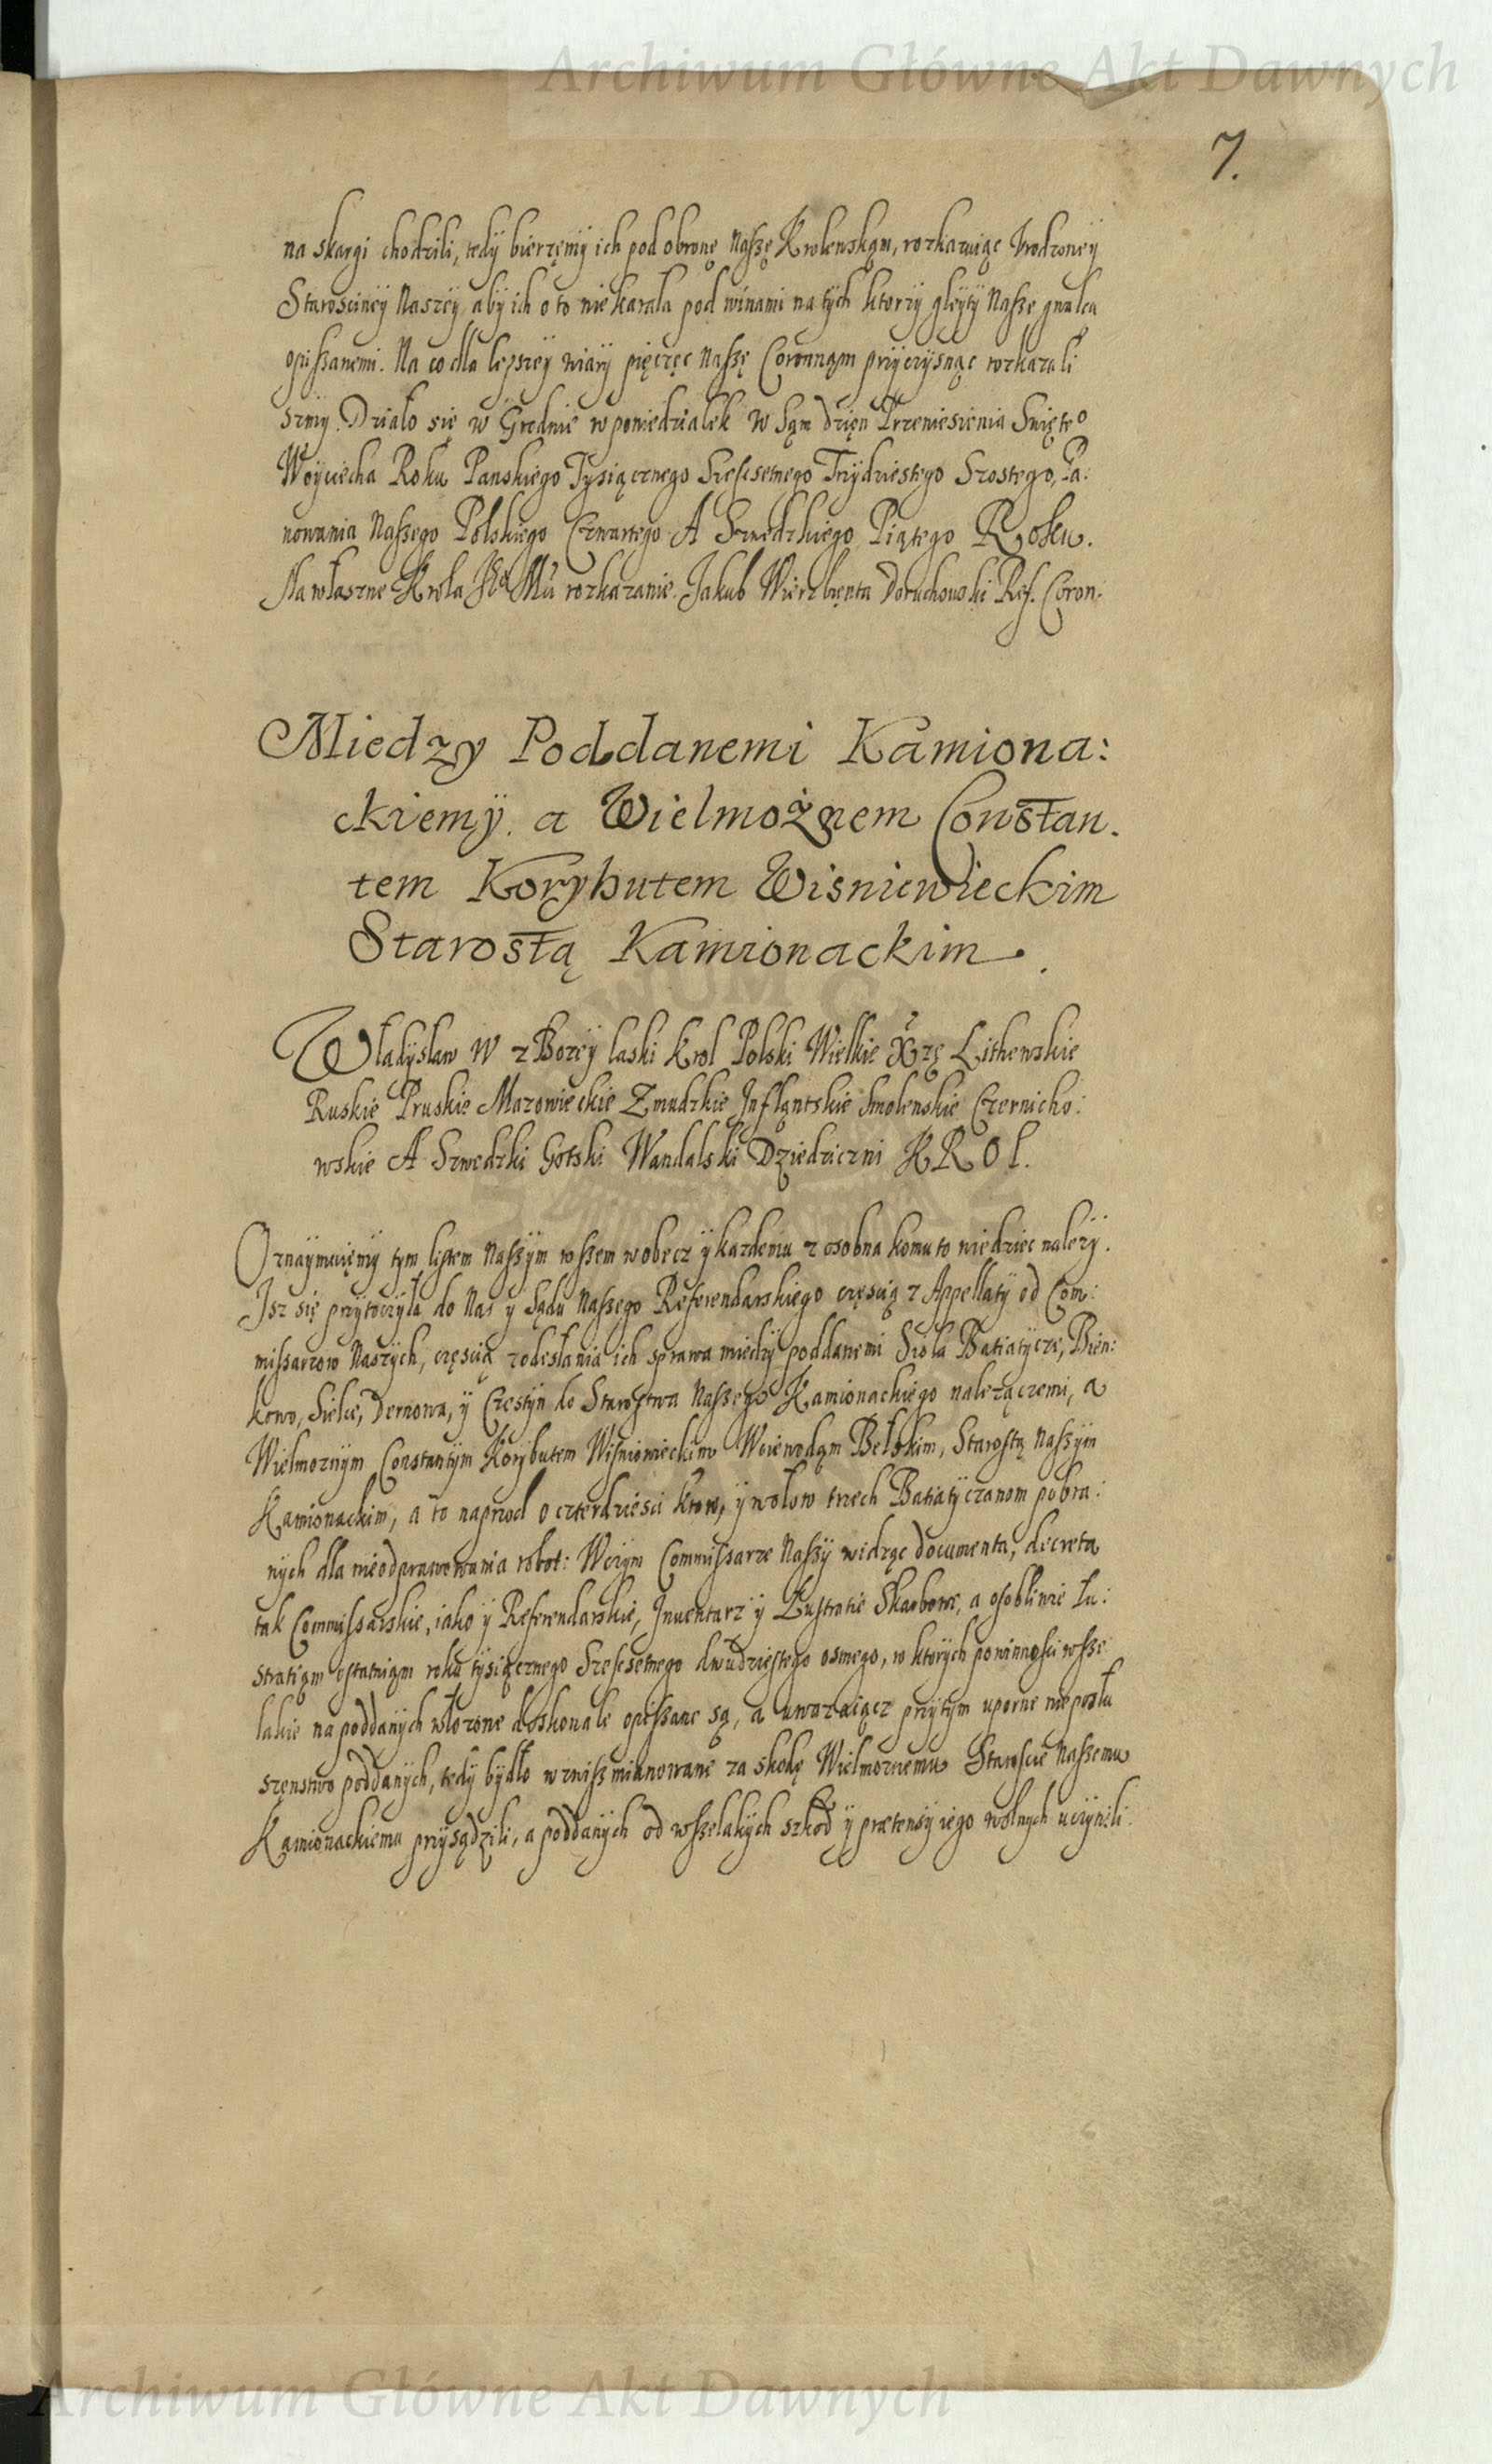 Archiwum Główne Akt Dawnych
7.
na skargi chodzili, tedÿ bierzęmÿ ich pod obronę Naszę Krolewskąm, rozkazuiąc Urodzoneÿ
Starościneÿ Naszeÿ, abÿ ich o to nie karała pod winami na tÿch ktorzÿ gleÿtÿ Nasze gwałcą
opiszanemi. Na co dla lepszeÿ wiarÿ pięczęc Naszę Coronnąm przÿcysnąc rozkazali
szmÿ. Działo się w Grodnie w poniedziałek w Sąm dzięn Przeniesienia Swięte°
Woÿciecha Roku Panskiego Tysiącznego Szescsetnego Trzÿdziestego Szostego, Pa:
nowania Naszego Polskiego Czwartego A Szwedzkiego Piątego Roku.
Na właszne Krola J° Mci rozkazanie. Jakub Wierzbięnta Doruchowski Ref. Coron:
Miedzy Poddanemi Kamiona:
ckiemÿ. a Wielmożnem Constan.
tem Korybutem Wisniewieckim
Starostą Kamionackim.
Władÿsław IV z Bozeÿ łaski Krol Polski Wielkie Xzę Lithewskie
Ruskie Pruskie Mazowieckie Zmudzkie Infląntskie Smolenskie Czernicho:
wskie A Szwedzki Gotski Wandalski Dziedziczni KROL.
Oznaÿmuięmÿ tÿm listem Naszÿm wszem wobęcz ÿ kazdemu z osobna komu to wiedziec nalezÿ.
Isz się przÿtoczÿła do Nas ÿ Sądu Naszego Referendarskiego częscią z Appellatÿ od Com:
missarzow Naszÿch, częscią z odesłania ich sprawa miedzÿ poddanemi Sioła Batiatÿcze, Bien:
kowo, Sielce, Dernowa, ÿ Czestÿn do Starostwa Naszego Kamionackiego nalezączemi, a
Wielmoznÿm Constantÿm Korÿbutem Wiszniowieckim Woiewodąm Bełskim, Starostą Naszÿm
Kamionackim, a to naprzod o czterdziesci krow, ÿ wołow trzech Batiatÿczanom pobra:
nÿch dla nieodprawowania robot: Wczÿm Commissarze Naszÿ widząc documenta, decreta
tak Commissarskie, iako ÿ Referendarskie, Inwentarz ÿ Lustratie Skarbowe, a osobliwie Lu:
stratiąm ostatniąm roku tÿsiącznego Szescsetnego dwudziestego osmego, w ktorÿch powinnosci wsze
lakie na poddanÿch włozone doskonale opiszane są, a uwazaiącz przÿtÿm uporne nieposłu
szęnstwo poddanÿch, tedÿ bÿdło wzwisz mianowane za skodę Wielmoznemu Staroscie Naszemu
Kamionackiemu przÿsądzili, a poddanÿch od wszelakÿch szkod ÿ prætensÿ iego wolnÿch uczÿnili.
Archiwum Główne Akt Dawnych